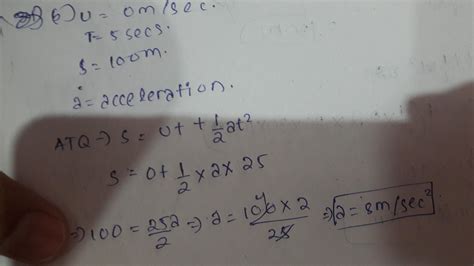 6) u = 0m/sec.
T = 5 secs.
S = 100m.
a = acceleration.
ATQ → S = ut + 1/2 at²
S = 0 + 1/2 × a × 25
⇒ 100 = 25a/2 ⇒ a = 100 × 2/25 ⇒ a = 8m/sec²